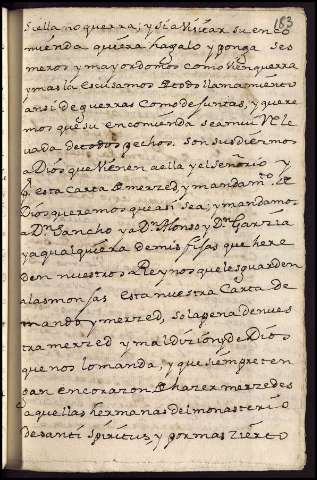 183
si ella no querra; y si a Visitar su enco
mienda quiera hagalo y ponga ses
meros y mayordomos como bien querra
y mas la escusamos de todo llanamiento
ansi de guerras como de juntas, y quere
mos que su encomienda sea mui Rele
vada de todos pechos. Son sus diezmos
a Dios que Vienen a ella y el señorio y
p. esta Carta de merzed, y mandam.to de
Dios queramos que asi sea; y mandamos
a Dn Sancho y a Dn Alonso y Dn Garzia
y a qualquiera de mis fijos que here
den nuestros Reynos que les guarden
a las monjas esta nuestra Carta de
mando y merzed, so la pena de nues
tra merzed y maldizion, de Dios
que no lo manda, y que siempre ten
gan en corazon de hazer merzedes
a aquellas hermanas del monasterio
de santi spiritus, y por mas zierto